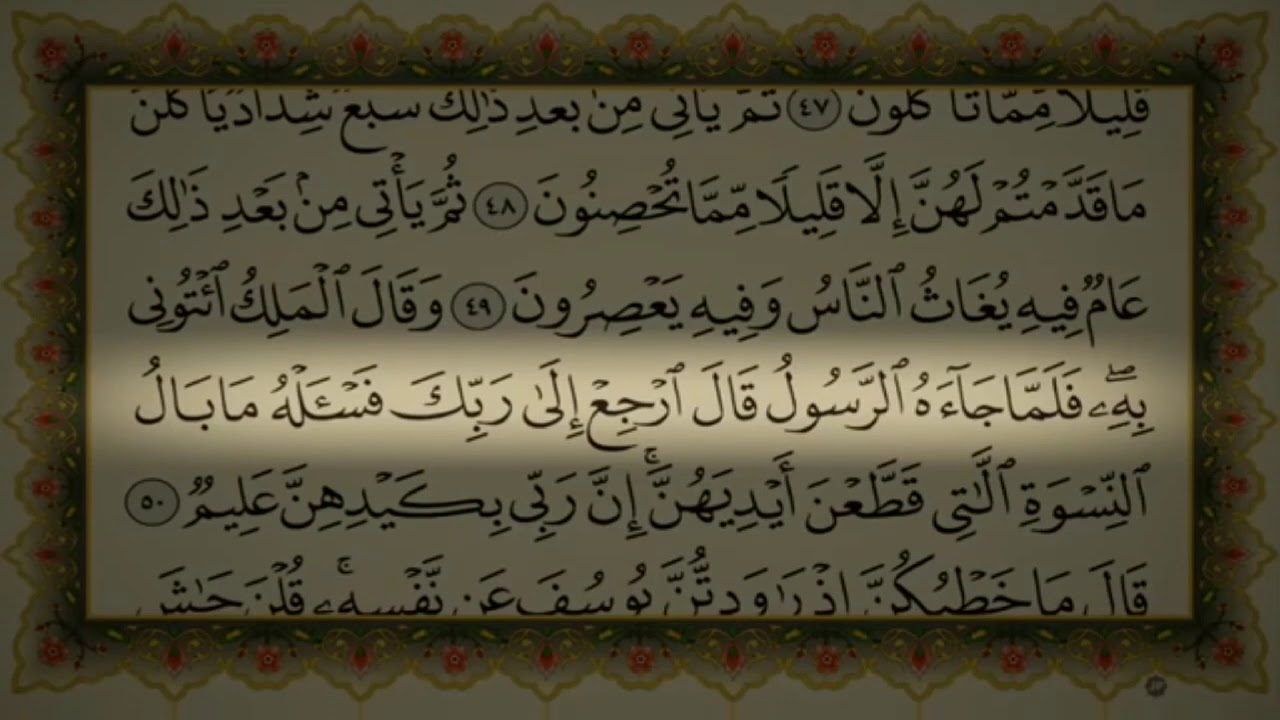 قَلِيلًا مِّمَّا تَأْكُلُونَ ٤٧ ثُمَّ يَأْتِى مِنۢ بَعْدِ ذَٰلِكَ سَبْعٌ شِدَادٌ يَأْكُلْنَ
مَا قَدَّمْتُمْ لَهُنَّ إِلَّا قَلِيلًا مِّمَّا تُحْصِنُونَ ٤٨ ثُمَّ يَأْتِى مِنۢ بَعْدِ ذَٰلِكَ
عَامٌ فِيهِ يُغَاثُ ٱلنَّاسُ وَفِيهِ يَعْصِرُونَ ٤٩ وَقَالَ ٱلْمَلِكُ ٱئْتُونِى
بِهِۦۖ فَلَمَّا جَآءَهُ ٱلرَّسُولُ قَالَ ٱرْجِعْ إِلَىٰ رَبِّكَ فَسْـَٔلْهُ مَا بَالُ
ٱلنِّسْوَةِ ٱلَّٰتِى قَطَّعْنَ أَيْدِيَهُنَّۚ إِنَّ رَبِّى بِكَيْدِهِنَّ عَلِيمٌ ٥٠
قَالَ مَا خَطْبُكُنَّ إِذْ رَٰوَدتُّنَّ يُوسُفَ عَن نَّفْسِهِۦۚ قُلْنَ حَٰشَ